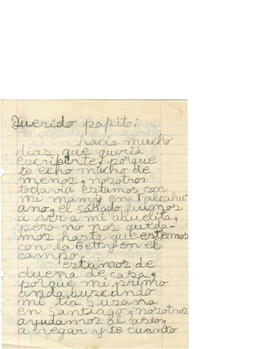 Querido papito:
hacía mucho
días que quería
escribirte, porque
te echo mucho de
menos, nosotros
todavía estamos con
mi mamy en Talcahu
ano, el sábado fuimos
a ver a mi abuelita,
pero no nos queda-
mos harto, que estemos
con la Betty en el
campo.
Estamos de
dueña de casa,
porque mi primo
anda buscando
mi tía Susana
en Santiago, nosotros
ayudamos al aseo,
a regar y te cuento